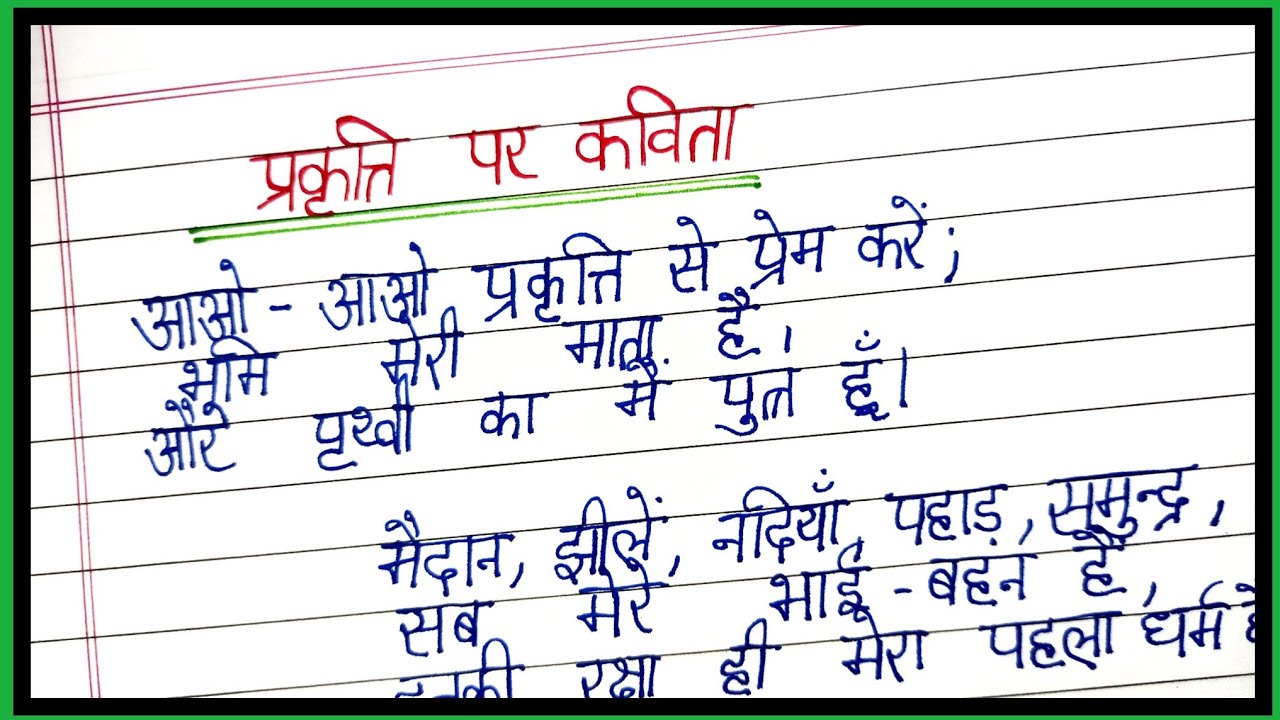 प्रकृत्ति पर कविता
आओ - आओ प्रकृत्ति से प्रेम करें;
भूमि मेरी माता है।
और पृथ्वी का मैं पुत्र हूँ।
मैदान, झीलें, नदियाँ, पहाड़, सुमुन्द्र,
सब मेरे भाई - बहन है,
रक्षा ही मेरा पहला धर्म